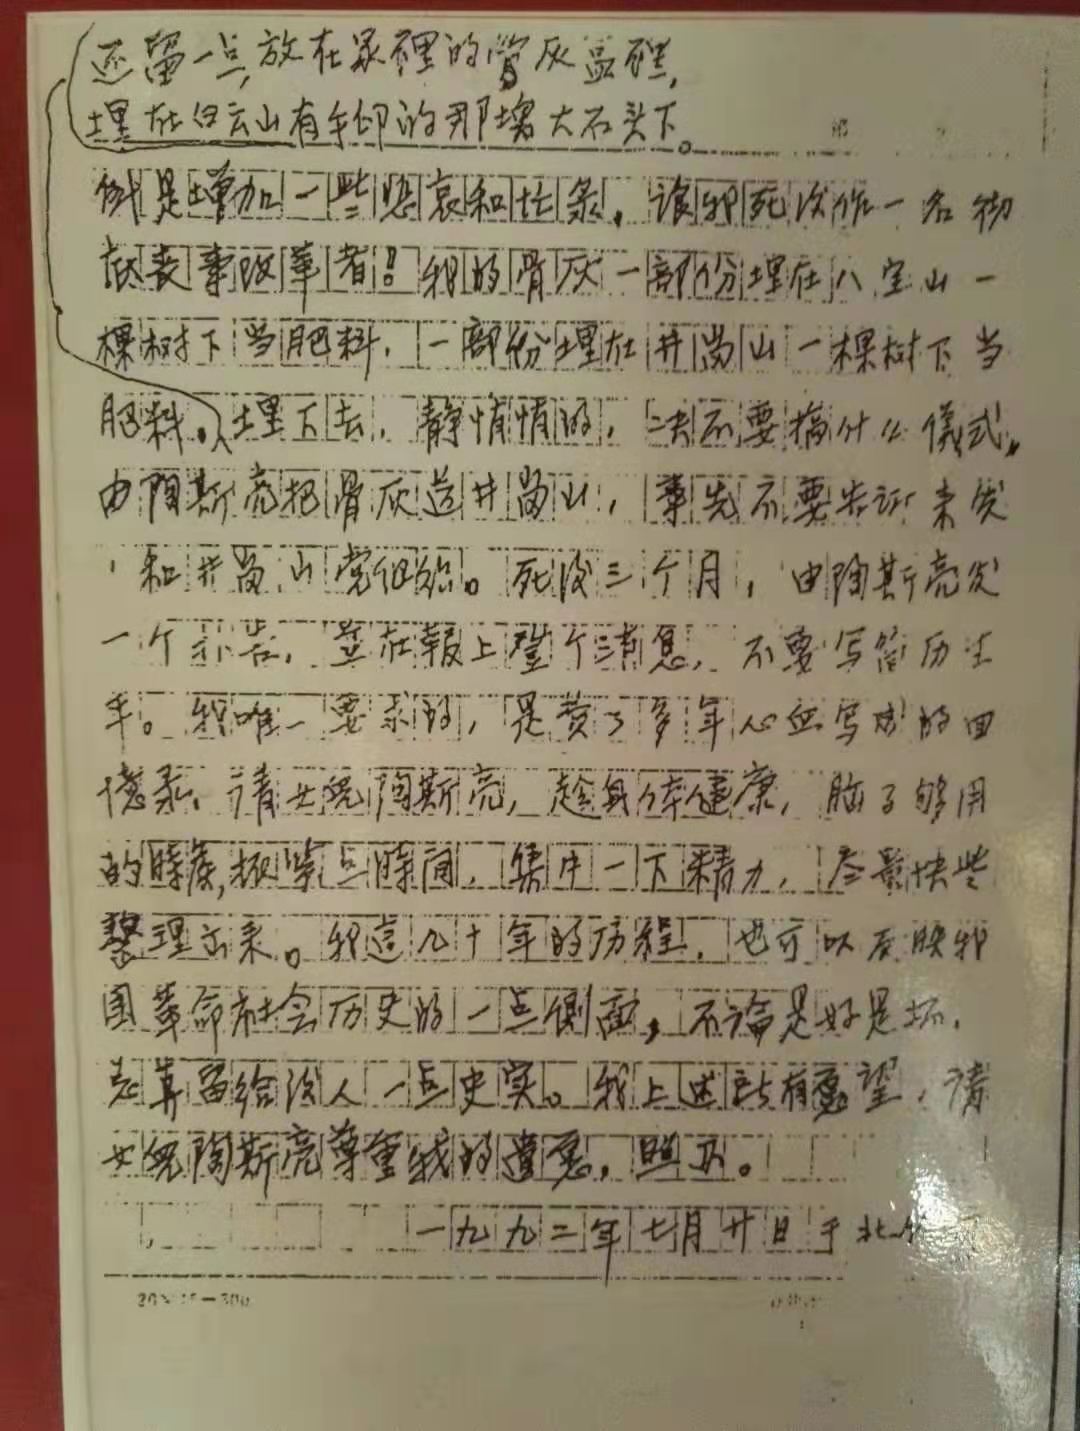 还留一点,放在家裡的骨灰盒裡,
埋在白云山有手印的那塊大石头下。
第
倒是增加一些悲哀和忙条,讓我死后作一名彻
底丧事改革者!我的骨灰一部份埋在八宝山一
棵树下当肥料,一部份埋在井岗山一棵树下当
肥料。埋下去,静悄悄的,决不要搞什么儀式,
由陶斯亮把骨灰送井岗山,事先不要告诉来发
和井岗山党组织。死后三个月,由陶斯亮发
一个讣告,並在報上登个消息,不要写简历生
平。我唯一要求的,是费了多年心血写成的回
憶录,请女兒陶斯亮,趁身体健康,脑子够用
的時候,抓紧点時间,集中一下精力,尽量快些
整理出来。我這几十年的历程,也可以反映我
国革命社会历史的一点侧面,不論是好是坏,
总算留给后人一点史实。我上述所有愿望,请
女兒陶斯亮尊重我的遺愿,照办。
一九九二年七月廿日于北
20×15=300